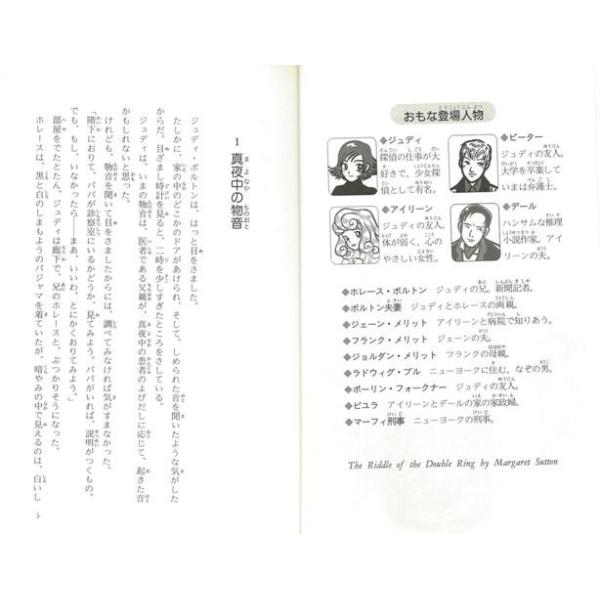 おもな登場人物
◆ジュディ
探偵の仕事が大
好きで、少女探
偵として有名。
◆ピーター
ジュディの友人。
大学を卒業して
いまは弁護士。
◆アイリーン
ジュディの友人。
体が弱く、心の
やさしい女性。
◆デール
ハンサムな推理
小説作家。アイ
リーンの夫。
◆ホレース・ボルトン ジュディの兄。新聞記者。
◆ボルトン夫妻 ジュディとホレースの両親。
◆ジェーン・メリット アイリーンと病院で知りあう。
◆フランク・メリット ジェーンの夫。
◆ジョルダン・メリット フランクの母親。
◆ラドウィグ・ブル ニューヨークに住む、なぞの男。
◆ポーリン・フォークナー ジュディの友人。
◆ビュラ アイリーンとデールの家の家政婦。
◆マーフィ刑事 ニューヨークの刑事。
The Riddle of the Double Ring by Margaret Sutton
1 真夜中の物音
ジュディ・ボルトンは、はっと目をさました。
たしかに、家の中のどこかのドアがあけられ、そして、しめられた音を聞いたような気がした
からだ。目ざまし時計を見ると、二時を少しすぎたところをさしている。
ジュディは、いまの物音は、医者である父親が、真夜中の患者のよびだしに応じて、起きた音
かもしれないと思った。
けれども、物音を聞いて目をさましたからには、調べてみなければ気がすまなかった。
「階下におりて、パパが診察室にいるかどうか、見てみよう。パパがいれば、説明がつくもの。
でも、もし、いなかったら――まあ、いいわ、とにかくおりてみよう。」
部屋をでたとたん、ジュディは廊下で、兄のホレースと、ぶつかりそうになった。
ホレースは、黒と白のしまもようのパジャマを着ていたが、暗やみの中で見えるのは、白いし
5